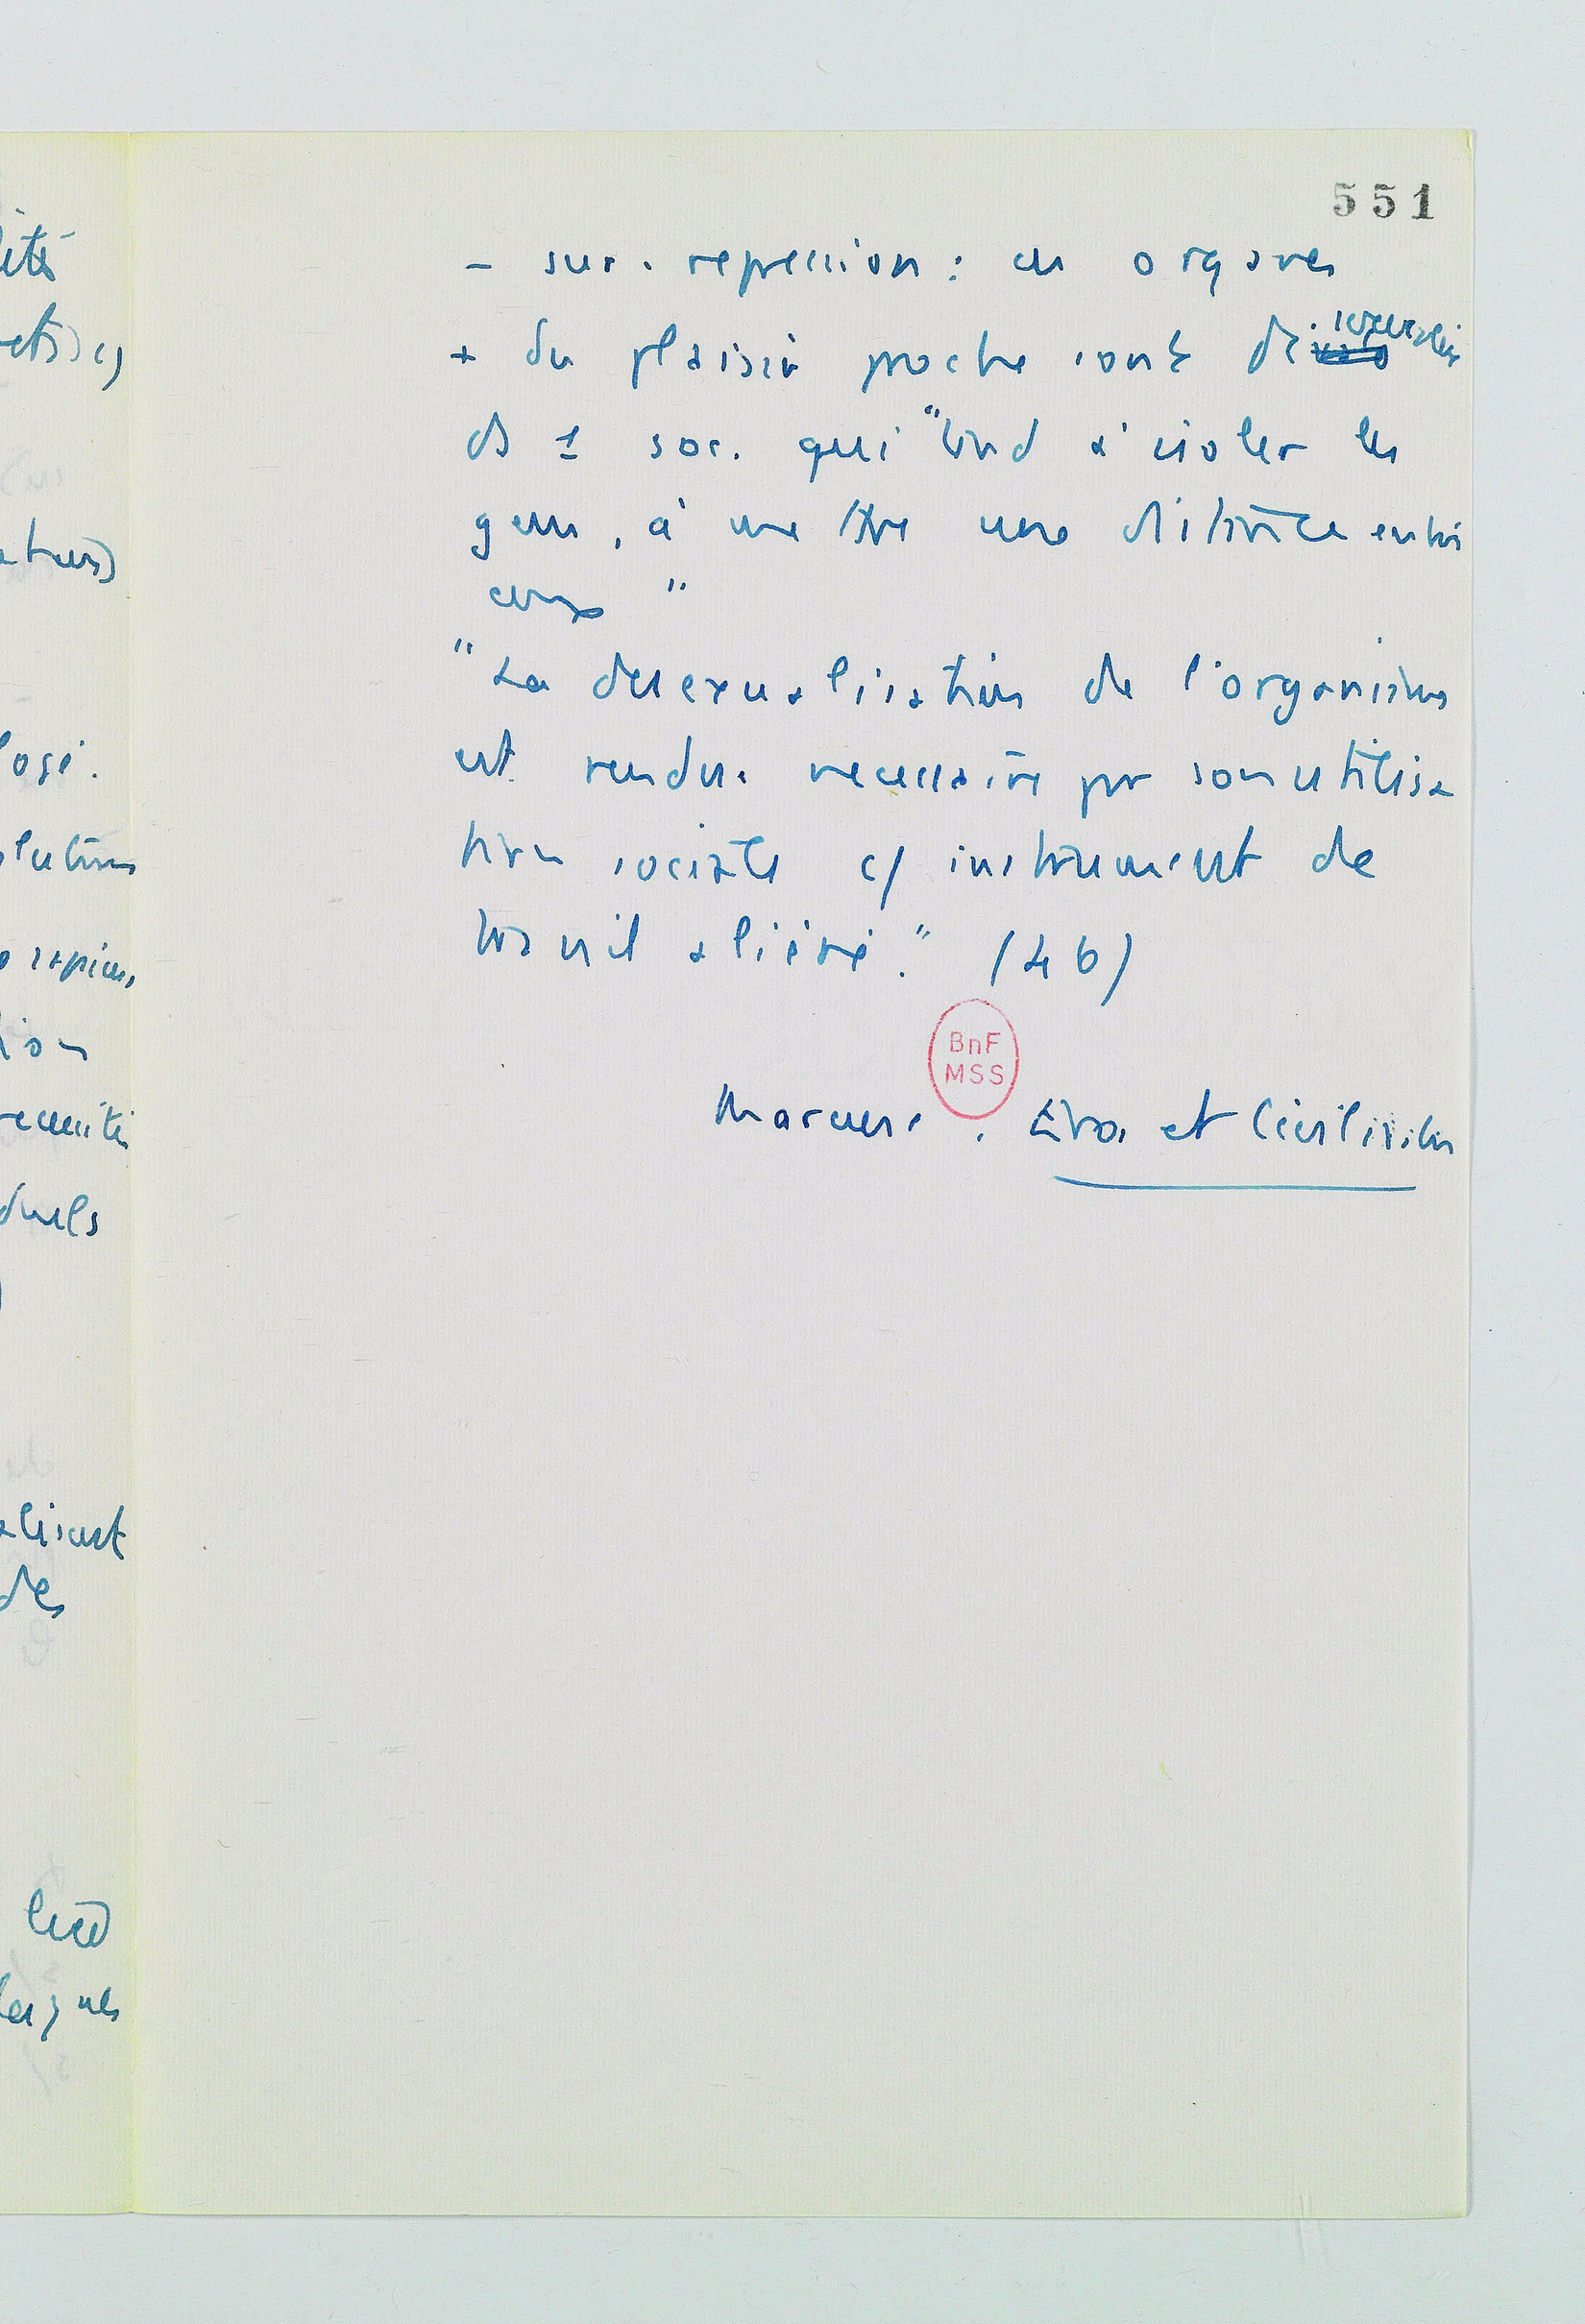 551
- sur. repression : ces organes
+ du plaisir proche sont désexualisés
ds 1 soc. qui "tend à isoler les
gens, à mettre une distance entre
eux"
"La desexualisation de l'organisme
est rendue necessaire par son utilisa
tion sociale c/ instrument de
travail aliéné." (46)
BnF
MSS
Marcuse. Eros et Civilisation
ité
logi.
lution
sapiens,
tion
duels
alisent
des